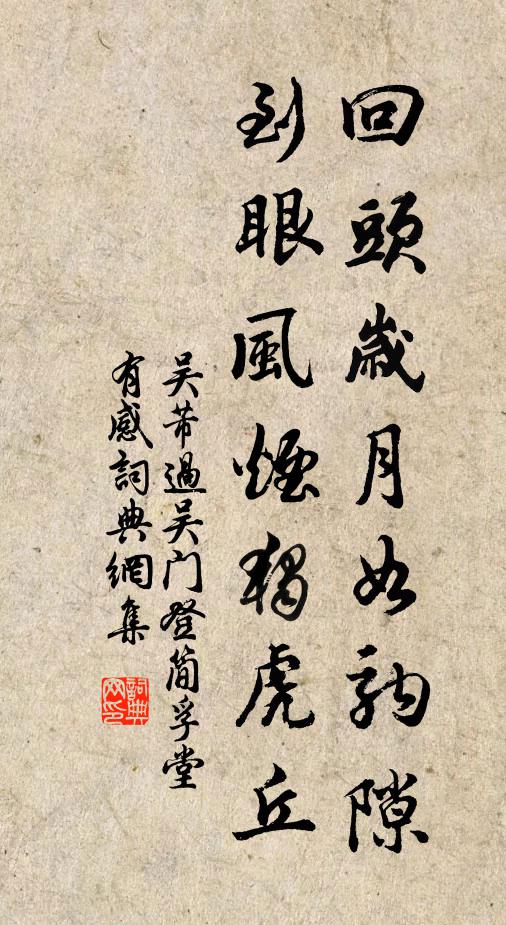 回頭歲月如駒隙
到眼風煙獨虎丘
吳芾過吳门登簡孚堂
有感詞典網集
詞典网印